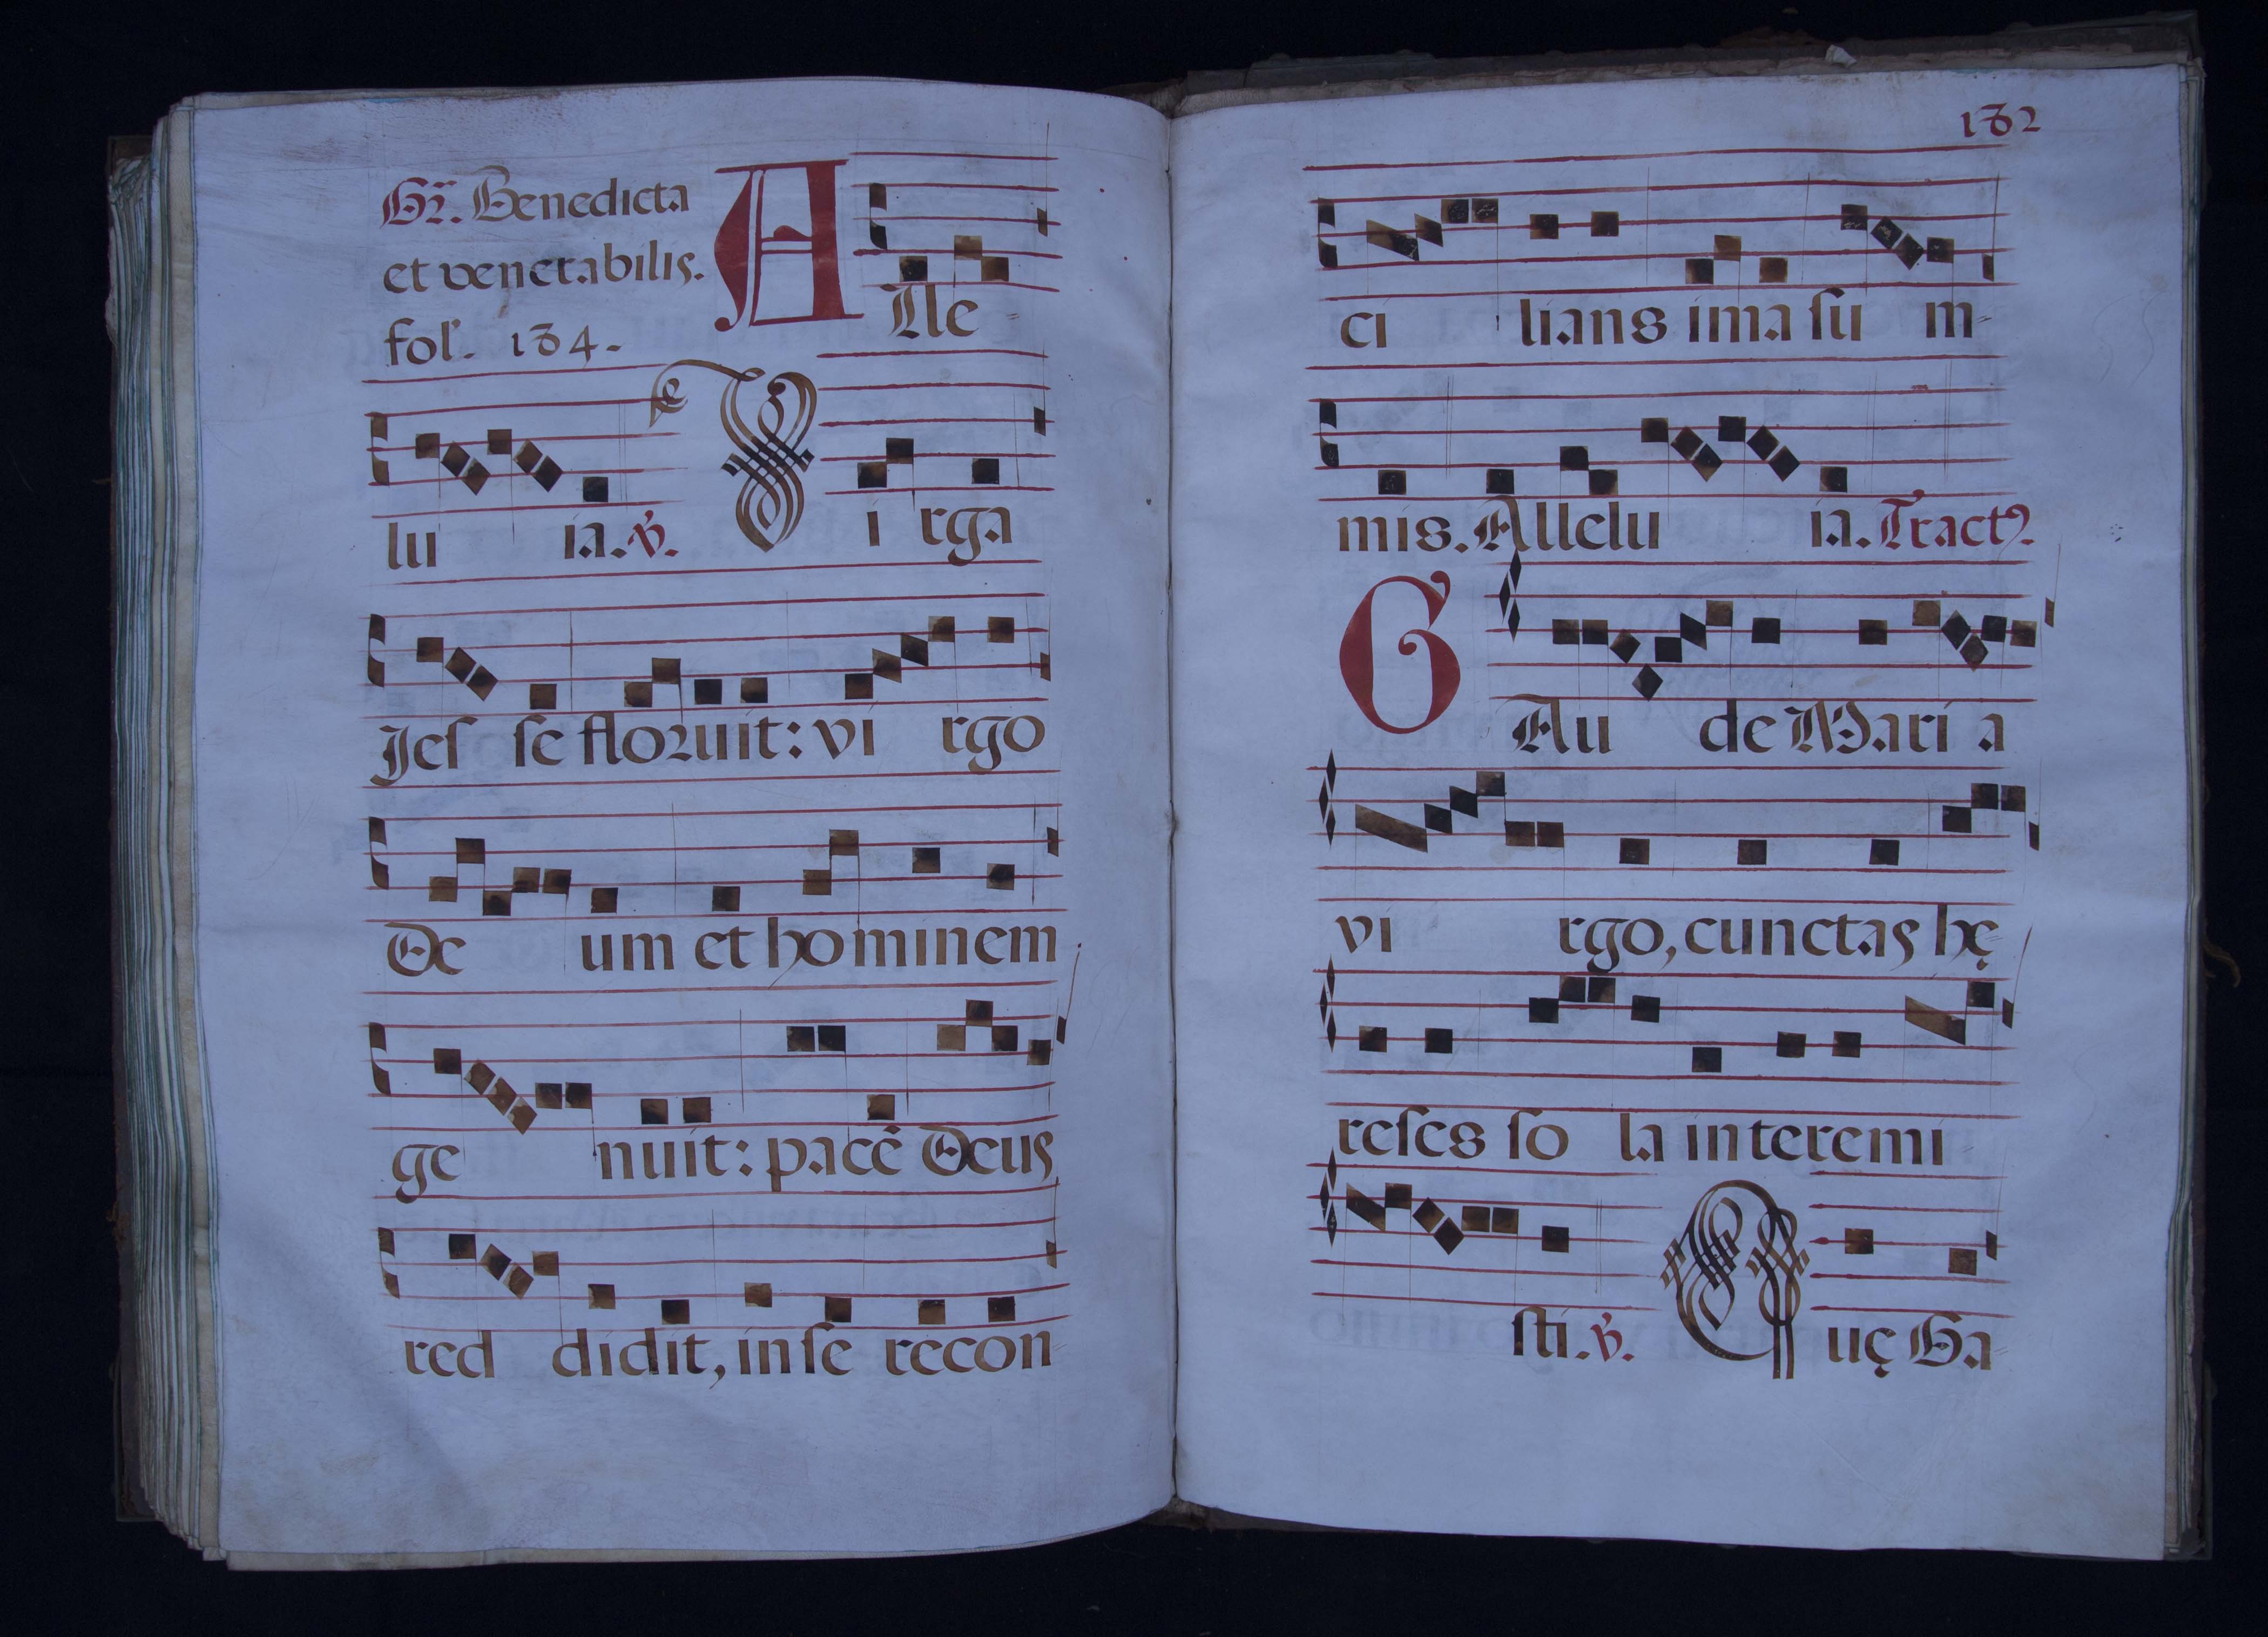 Gr. Benedicta
et venerabilis.
fol. 134.
A lle-
lu ia. ℣. Vi rga
Jeſ ſe floruit: vi rgo
De um et hominem
ge nuit: pacē Deus
red didit, in ſe recon-
132
ci lians ima ſu m-
mis. Allelu ia. Tractꝰ
GAu de Mari a
vi rgo, cunctas hę-
reſes ſo la interemi
ſti. ℣. Quę Ga-